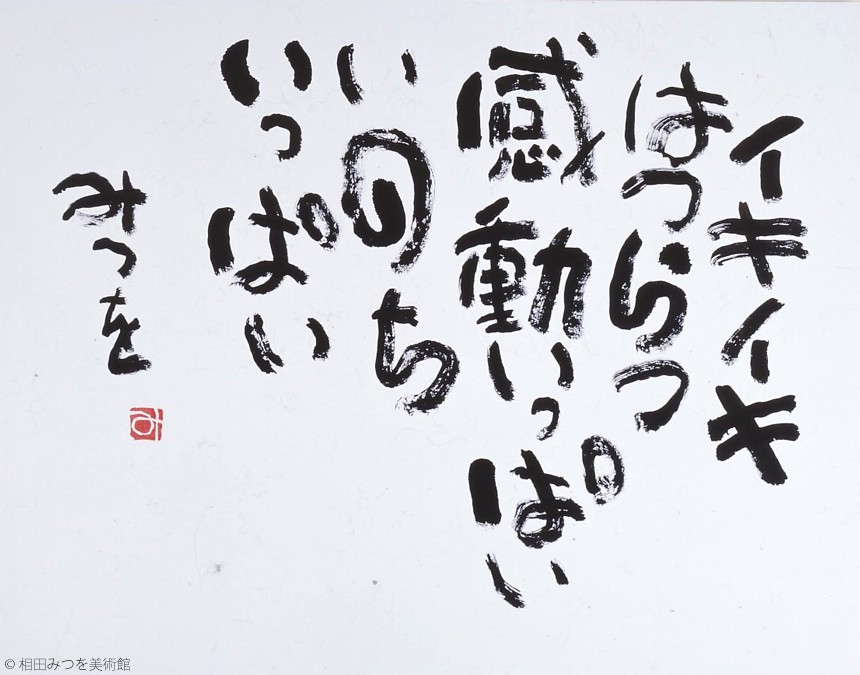 イキイキ
はつらつ
感動いっぱい
いのち
いっぱい
みつを
み
© 相田みつを美術館